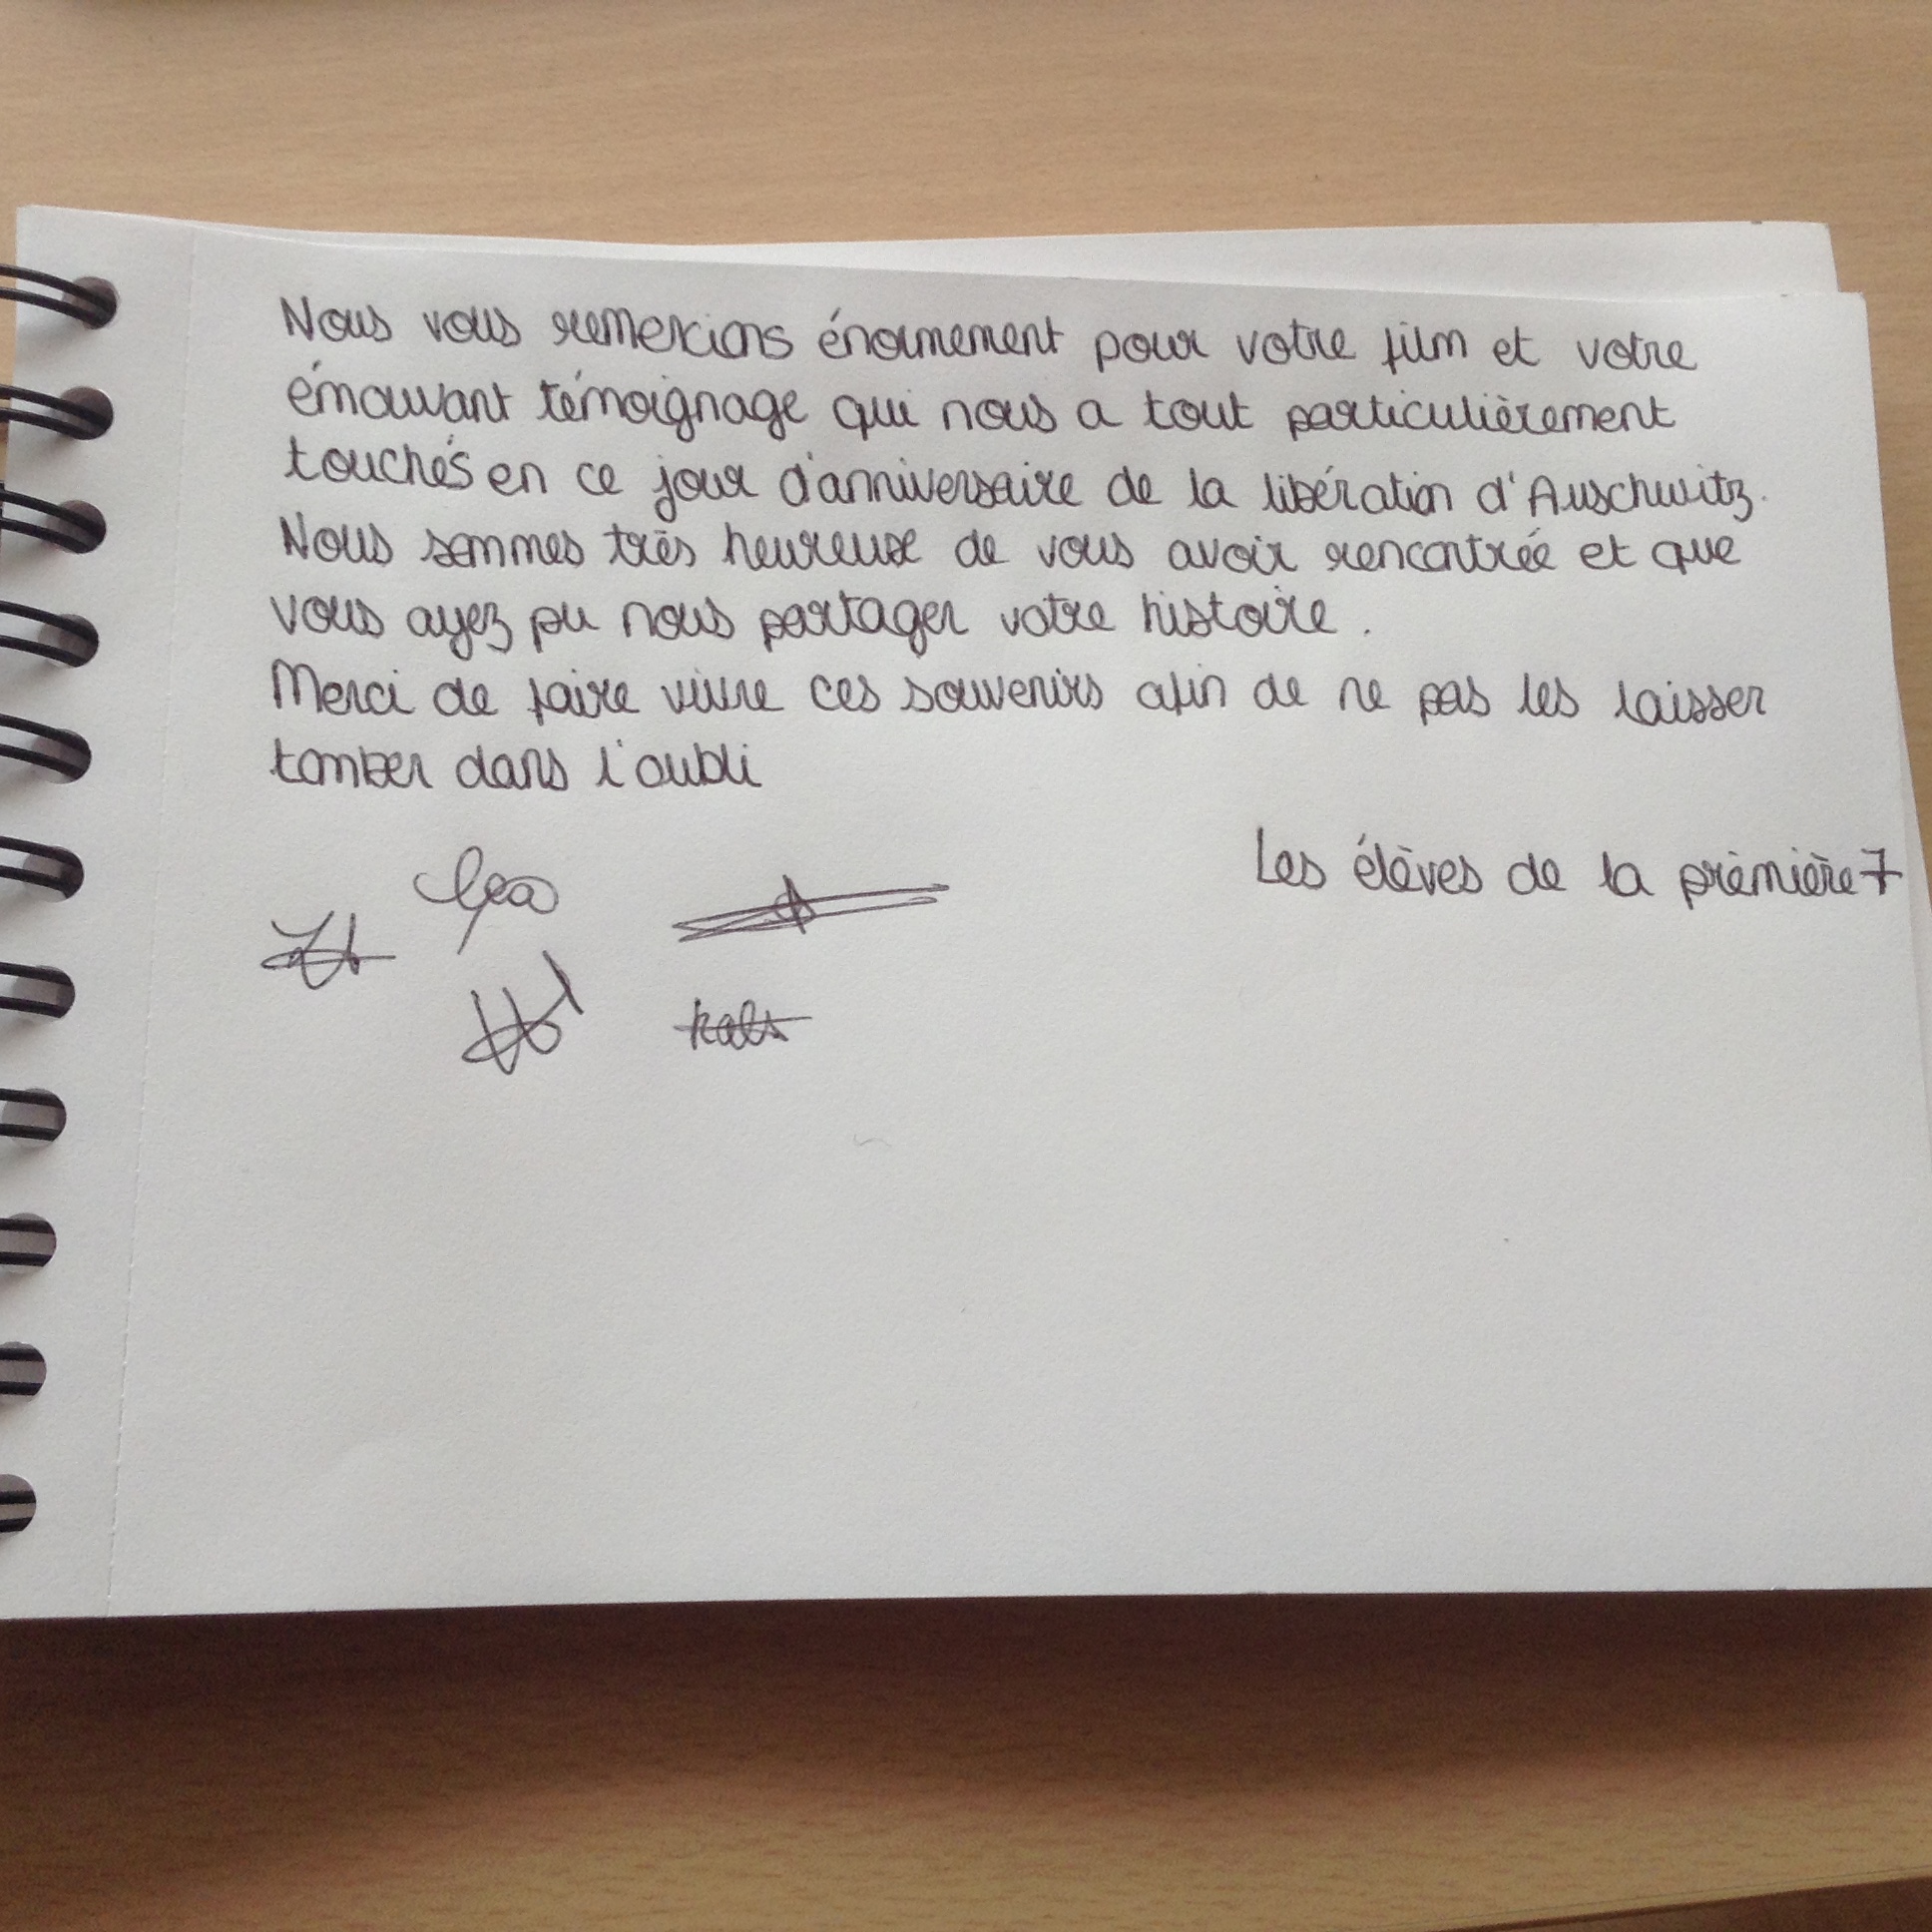 Nous vous remercions énormement pour votre film et votre
émouvant témoignage qui nous a tout particulièrement
touchés en ce jour d'anniversaire de la libération d'Auschwitz.
Nous sommes très heureuse de vous avoir rencontrée et que
vous ayez pu nous partager votre histoire.
Merci de faire vivre ces souvenirs afin de ne pas les laisser
tomber dans l'oubli
Les élèves de la prèmière 7